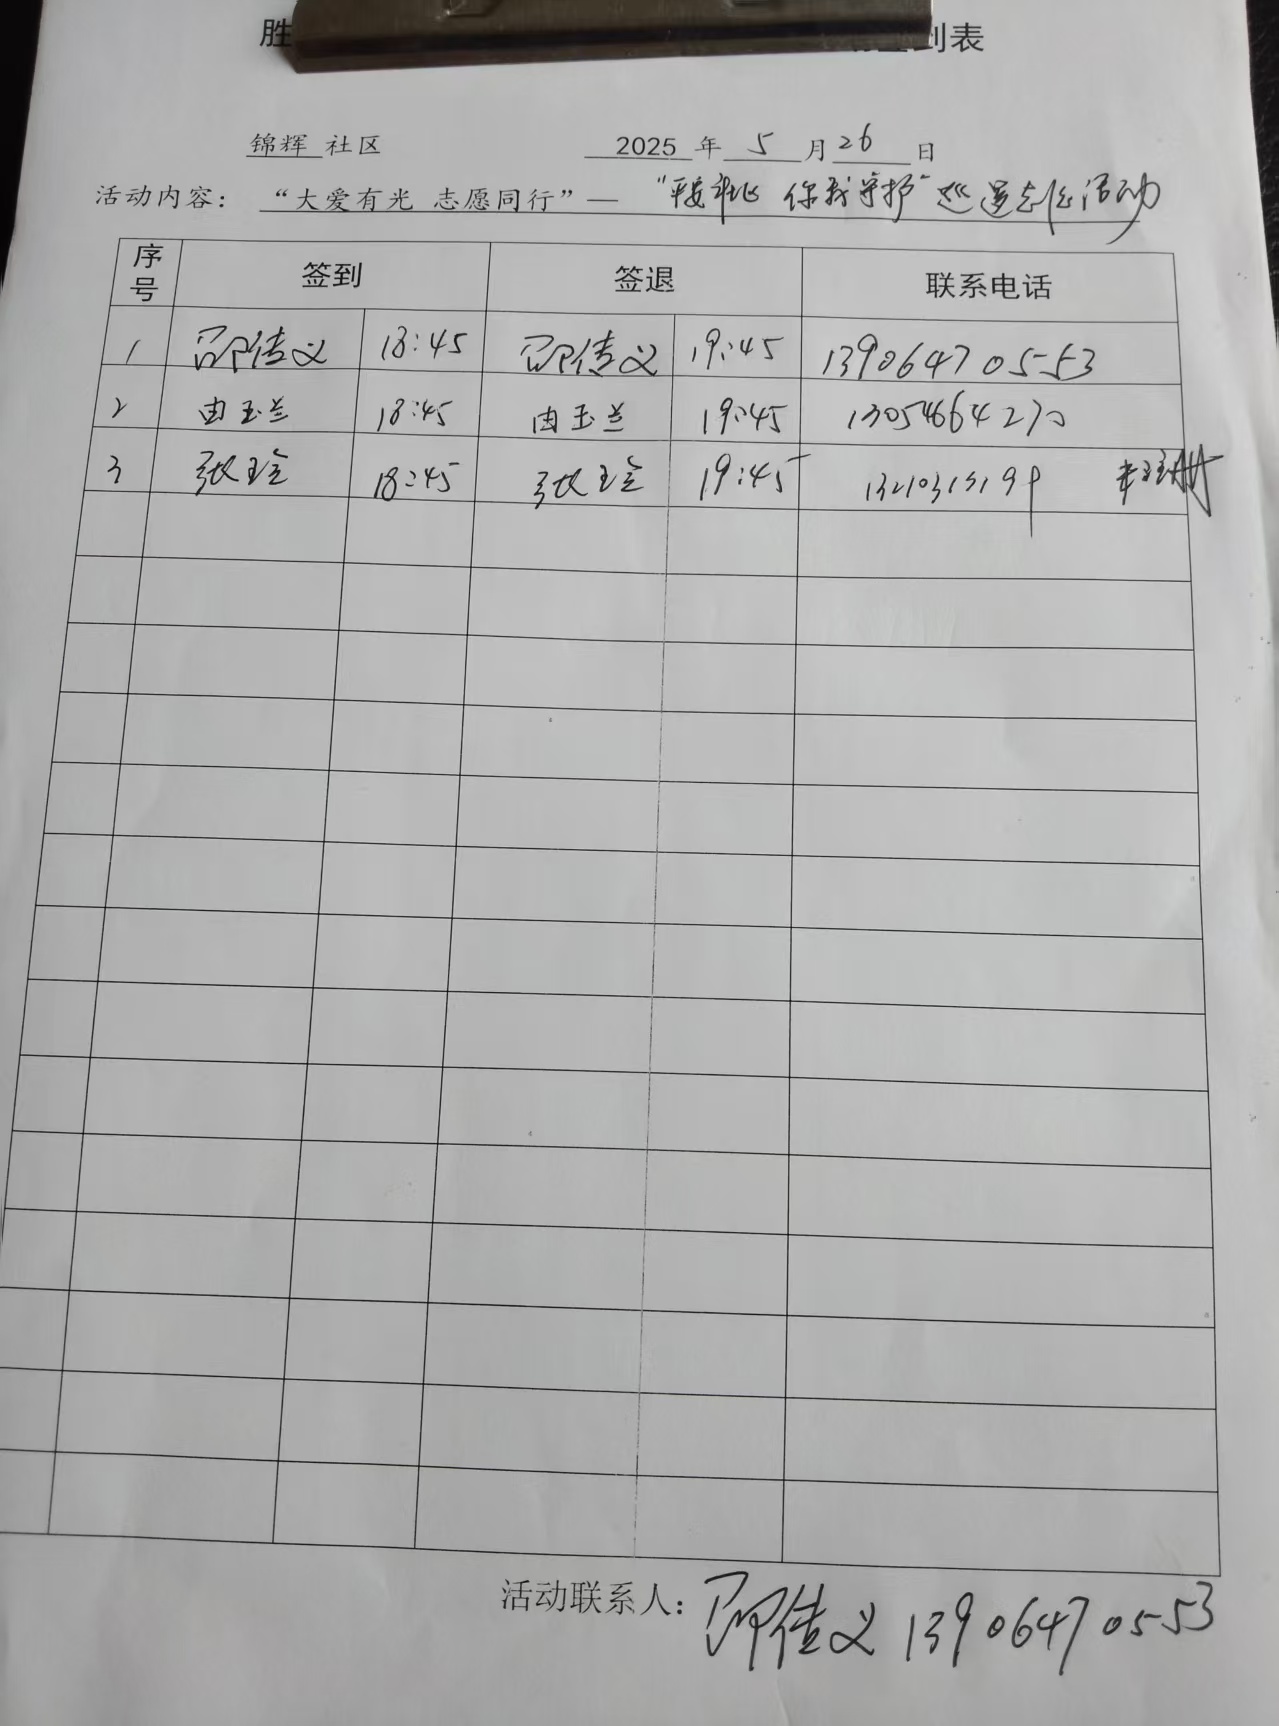 胜 到表
锦辉 社区 2025 年 5 月 26 日
活动内容： “大爱有光 志愿同行”— “平安 你我守护” 巡逻志愿活动
序号 签到 签退 联系电话
1 邵传义 18:45 邵传义 19:45 13906470553
2 由玉兰 18:45 由玉兰 19:45
3 张 18:45 张 19:45
活动联系人： 邵传义 13906470553